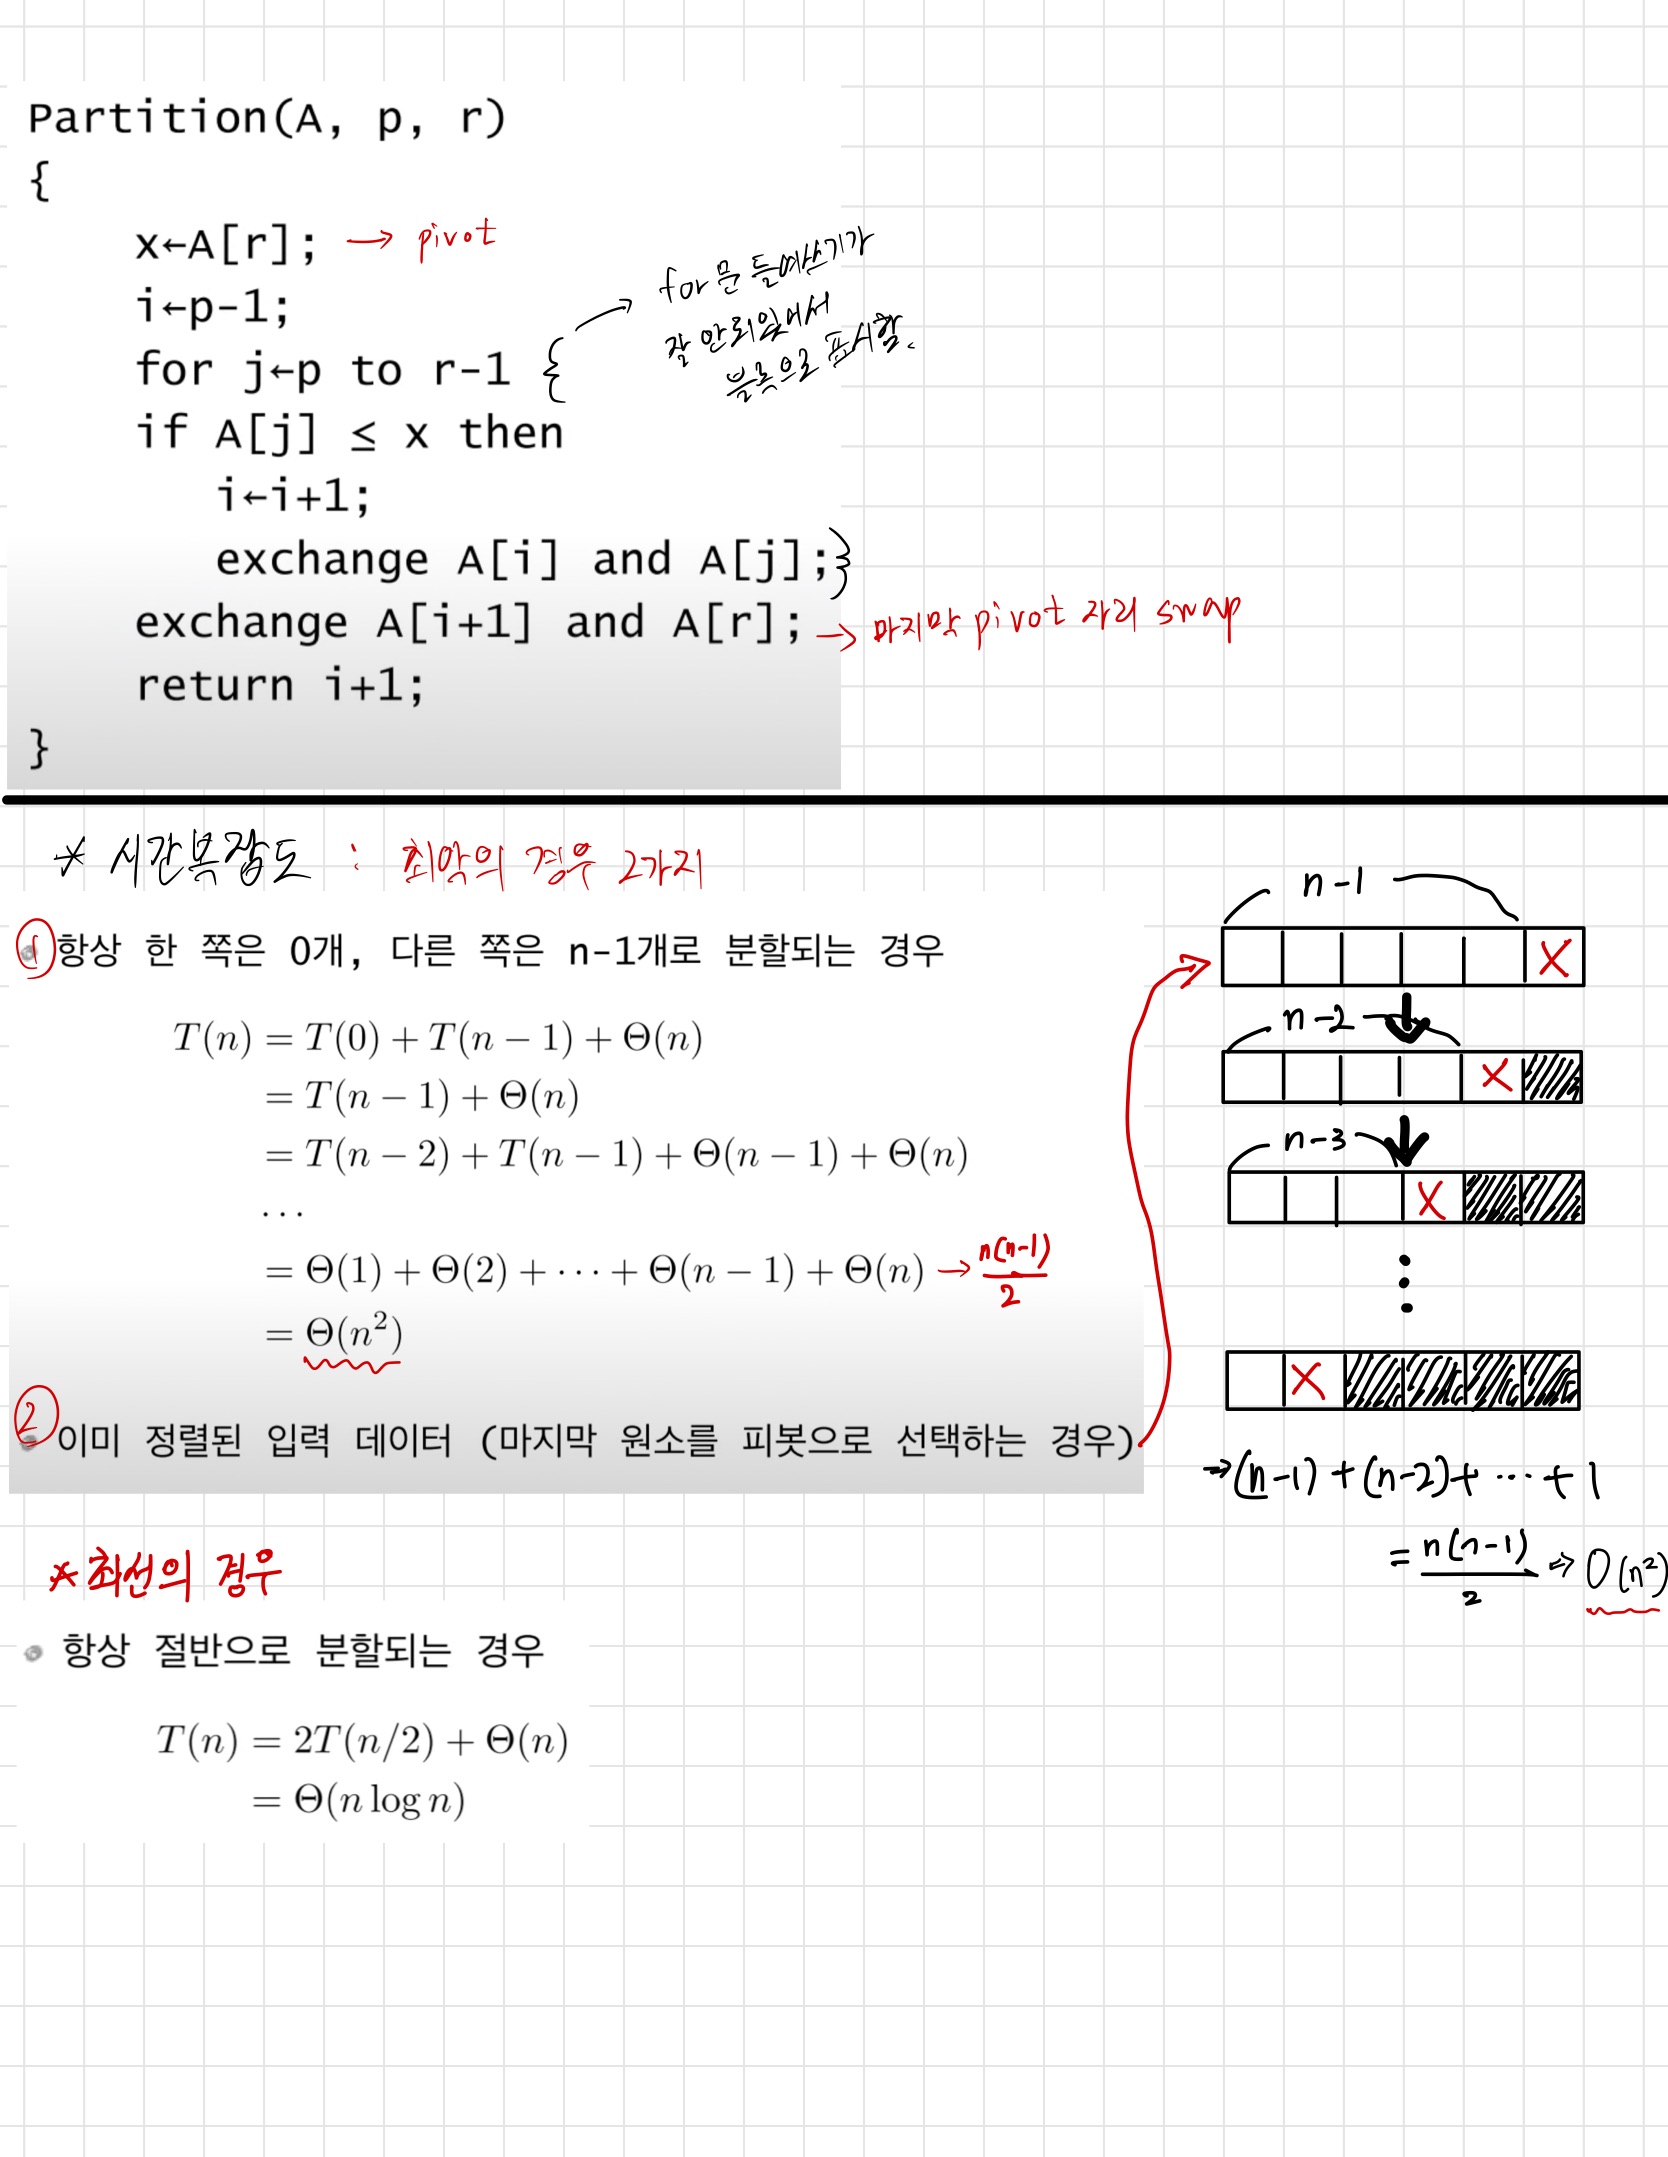 Partition(A, p, r)
{
x←A[r]; → pivot
i←p-1;
for j←p to r-1 {
for문 들여쓰기가
잘 안되있어서
블록으로 표시함.
if A[j] ≤ x then
i←i+1;
exchange A[i] and A[j];}
exchange A[i+1] and A[r]; → 마지막 pivot 자리 swap
return i+1;
}
* 시간복잡도 : 최악의 경우 2가지
① 항상 한 쪽은 0개, 다른 쪽은 n-1개로 분할되는 경우
T(n) = T(0) + T(n − 1) + Θ(n)
= T(n − 1) + Θ(n)
= T(n − 2) + T(n − 1) + Θ(n − 1) + Θ(n)
...
= Θ(1) + Θ(2) + ··· + Θ(n − 1) + Θ(n) → n(n-1)/2
= Θ(n²)
② 이미 정렬된 입력 데이터 (마지막 원소를 피봇으로 선택하는 경우)
n-1
X
n-2
X
n-3
X
X
⇒(n-1)+(n-2)+ ··· + 1
= n(n-1)/2 ⇒ O(n²)
* 최선의 경우
항상 절반으로 분할되는 경우
T(n) = 2T(n/2) + Θ(n)
= Θ(n log n)